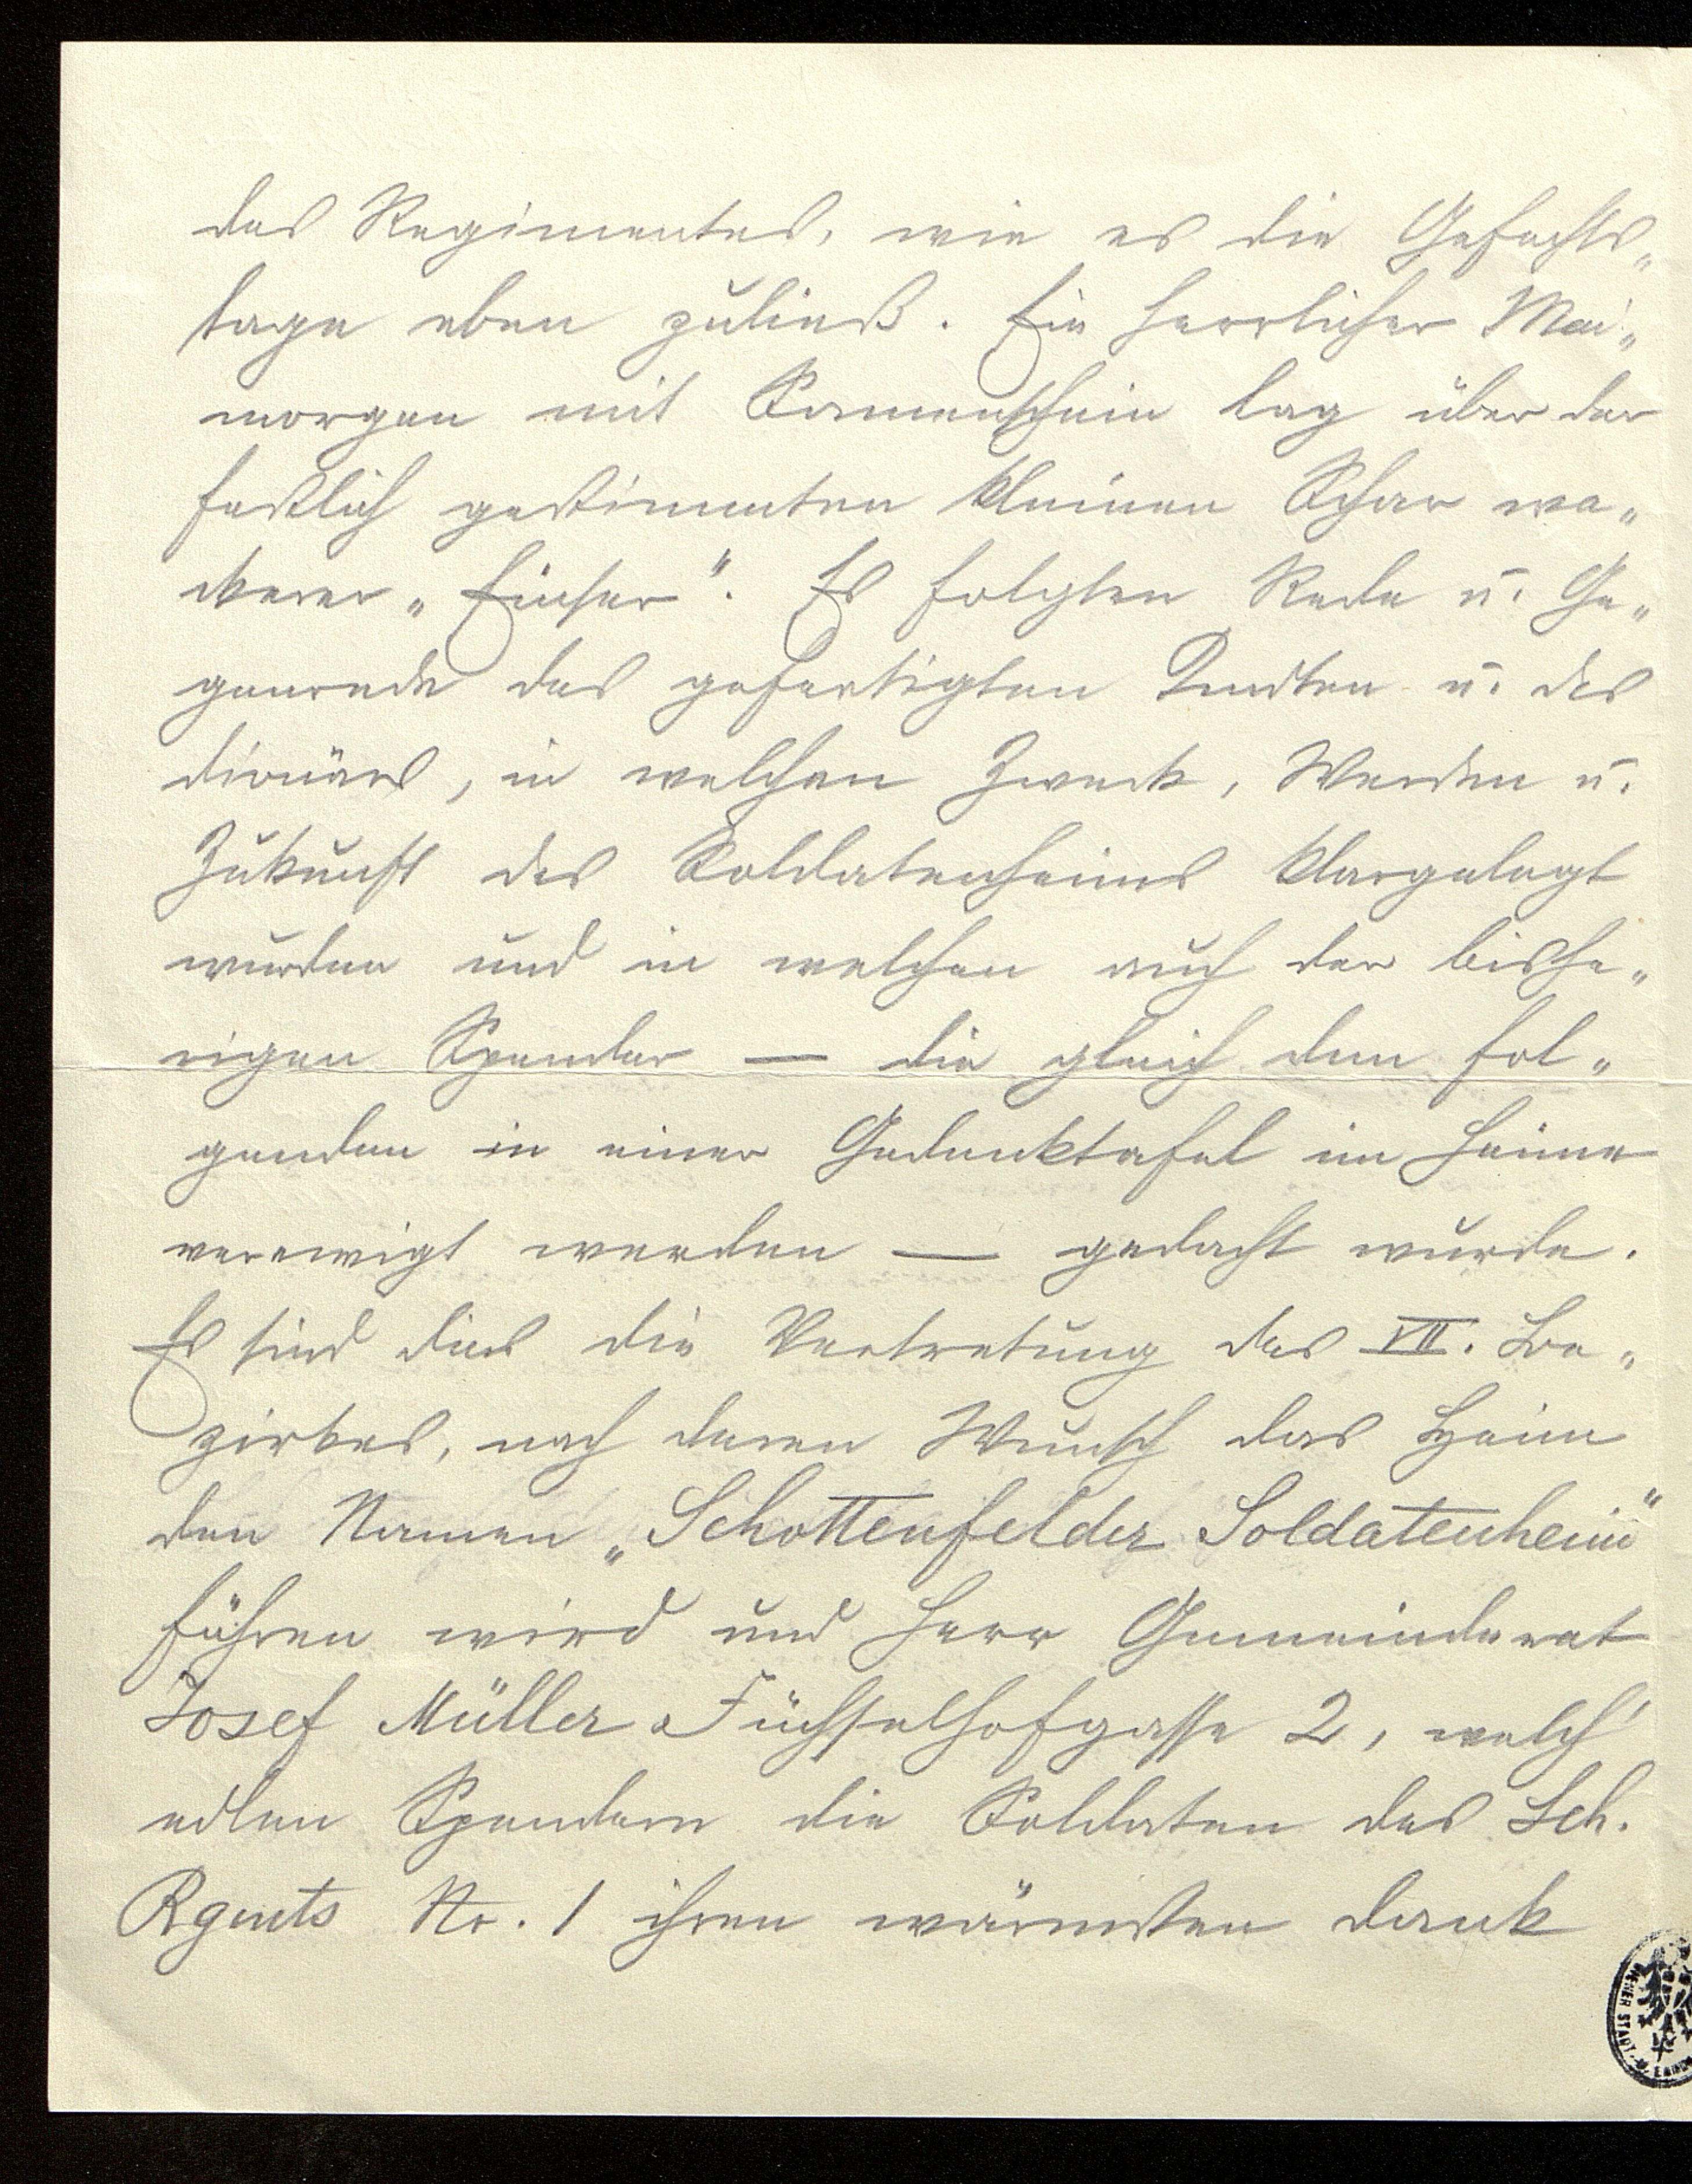 des Regimentes, wie es die Gefechts„
lage eben zuließ. Ein herrlicher Mai„
morgen mit Sonnenschein lag über der
festlich gestimmten kleinen Schar wa„
ckerer „Einser". Es folgten Rede u. Ge„
genrede des gefertigten Kmdten u. des
Divisionärs, in welchen Zweck, Werden u.
Zukunft des Soldatenheims klargelegt
wurden und in welchen auch der bishe„
rigen Spender — die gleich den fol„
genden in einer Gedenktafel im Heime
verewigt werden — gedacht wurde.
Es sind dies die Vertretung des VII. Be„
zirkes, nach deren Wunsch das Heim
den Namen „Schottenfelder Soldatenheim"
führen wird und Herr Gemeinderat
Josef Müller Füchselhofgasse 2, welch'
edlen Spendern die Soldaten des Sch.
Rgmts Nr. 1 ihren wärmsten Dank
WIENER STADT-